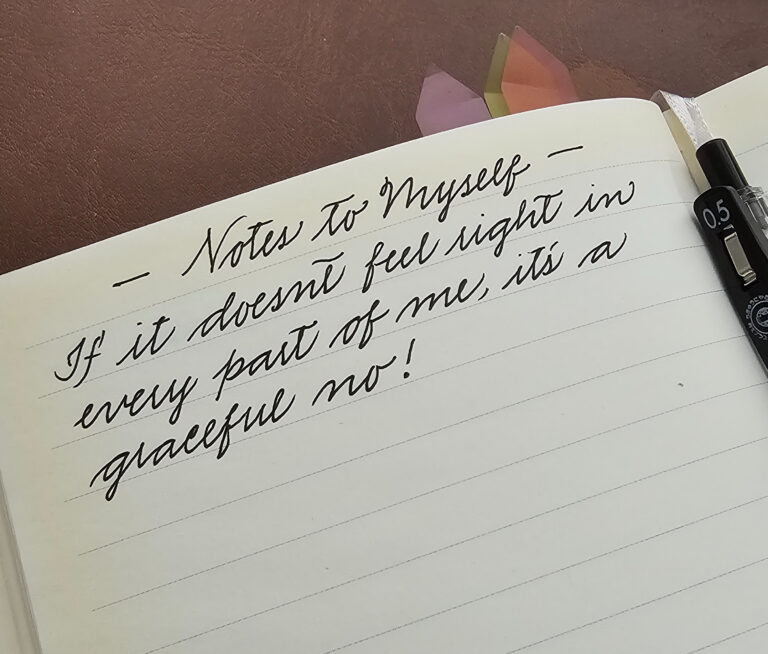 — Notes to Myself —
If it doesn't feel right in
every part of me, it's a
graceful no!
0.5